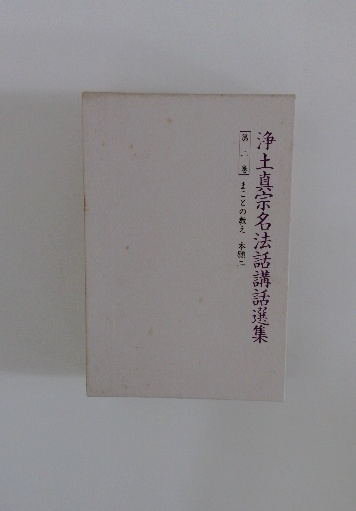 浄土真宗名法話講話選集
第二巻 まことの教え 本願二